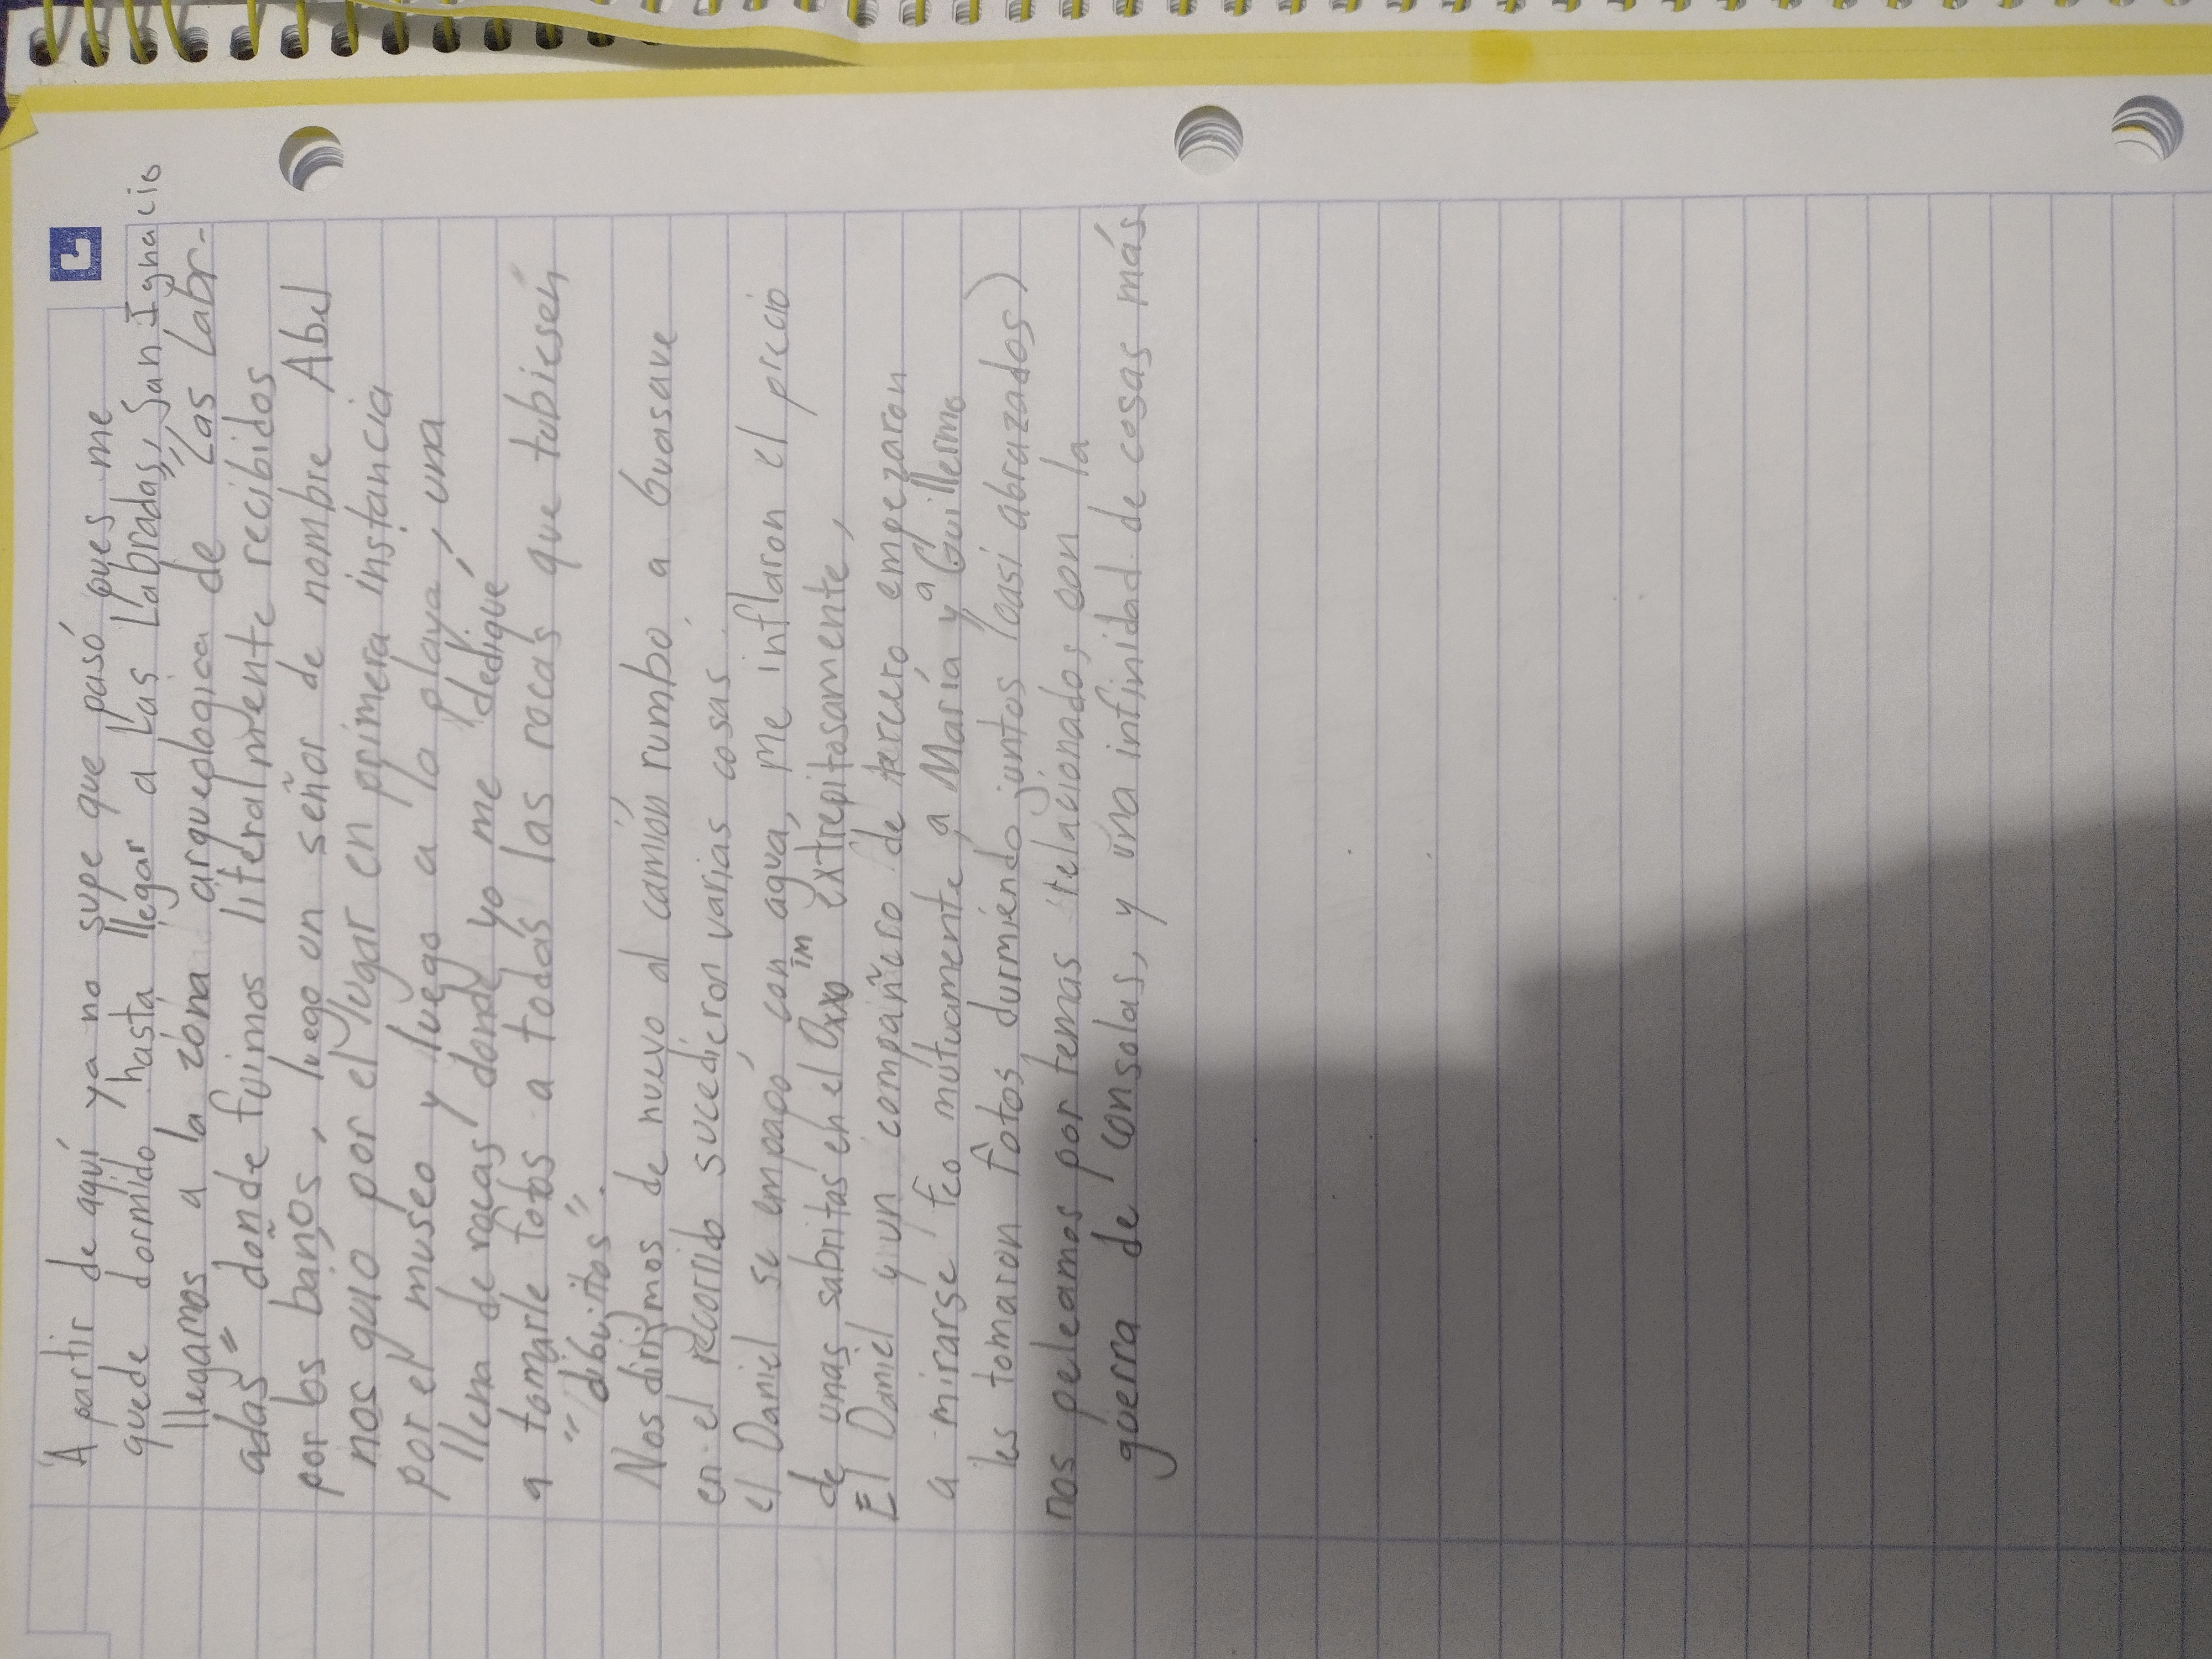 A partir de aquí ya no supe que pasó pues me
quede dormido hasta llegar a Las Labradas, San Ignacio
llegamos a la zona arqueologica de "Las Labr-
adas" donde fuimos literalmente recibidos
por los baños, luego un señor de nombre Abel
nos guio por el lugar en primera instancia
por el museo y luego a la playa, una
llena de rocas donde yo me dediqué
a tomarle fotos a todas las rocas que tubiesen
"dibujitos".
Nos dirijimos de nuevo al camión rumbo a Guasave
en el recorrido sucedieron varias cosas
el Daniel se empapó con agua, me inflaron el precio
de unas sabritas en el Oxxo extrepitosamente,
El Daniel y un compañero de tercero empezaron
a mirarse feo mútuamente, a María y a Guillermo
les tomaron fotos durmiendo juntos (casi abrazados)
nos peleamos por temas relacionados con la
guerra de consolas, y una infinidad de cosas más